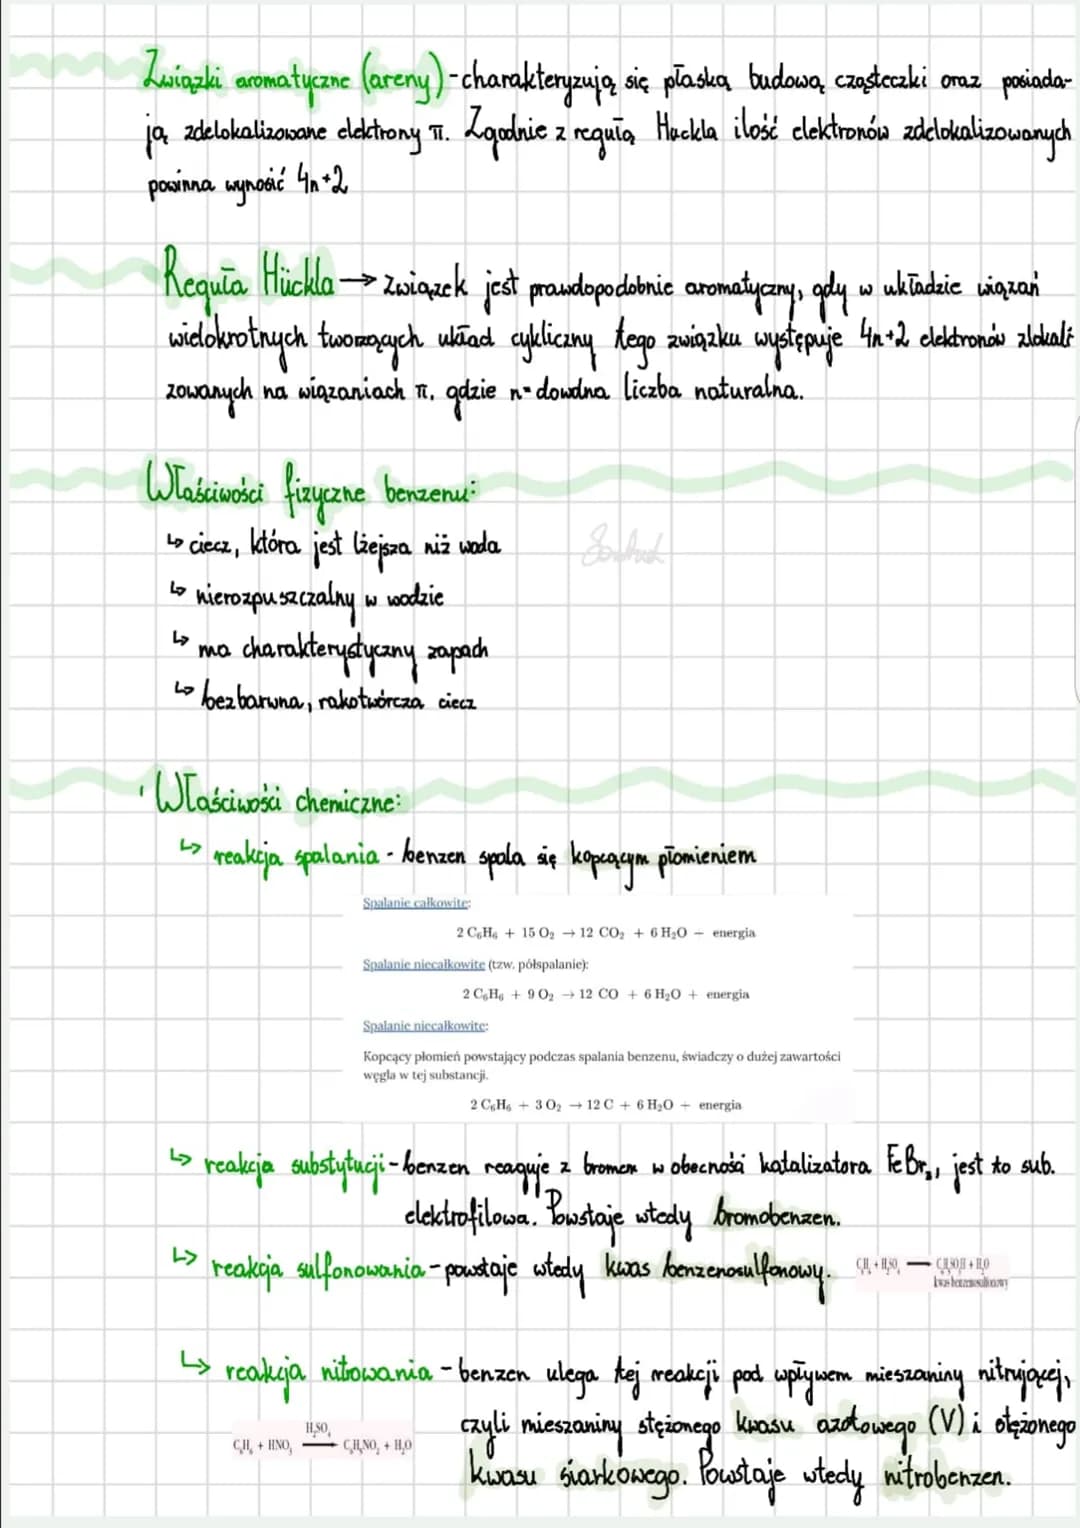 Związki aromatyczne (areny) - charakteryzują się płaską budową cząsteczki oraz posiada-
ją zdelokalizowane elektrony π. Zgodnie z regułą Huckla ilość elektronów zdelokalizowanych
powinna wynosić 4n+2
Reguła Hückla → Związek jest prawdopodobnie aromatyczny, gdy w układzie wiązań
wielokrotnych tworzących układ cykliczny tego związku występuje 4n+2 elektronów zlokali
zowanych na wiązaniach π, gdzie n - dowolna liczba naturalna.
Właściwości fizyczne benzenu:
↳ ciecz, która jest lżejsza niż woda
↳ nierozpuszczalny w wodzie
↳ ma charakterystyczny zapach
↳ bezbarwna, rakotwórcza ciecz
Właściwości chemiczne:
↳ reakcja spalania - benzen spala się kopcącym płomieniem
Spalanie całkowite:
2 C₆H₆ + 15 O₂ → 12 CO₂ + 6 H₂O − energia
Spalanie niecałkowite (tzw. półspalanie):
2 C₆H₆ + 9 O₂ → 12 CO + 6 H₂O + energia
Spalanie niecałkowite:
Kopcący płomień powstający podczas spalania benzenu, świadczy o dużej zawartości
węgla w tej substancji.
2 C₆H₆ + 3 O₂ → 12 C + 6 H₂O + energia
↳ reakcja substytucji - benzen reaguje z bromem w obecności katalizatora FeBr₃, jest to sub.
elektrofilowa. Powstaje wtedy bromobenzen.
↳ reakcja sulfonowania - powstaje wtedy kwas benzenosulfonowy. C₆H₆ + H₂SO₄ → C₆H₅SO₃H + H₂O
kwas benzenosulfonowy
↳ reakcja nitowania - benzen ulega tej reakcji pod wpływem mieszaniny nitrującej,
czyli mieszaniny stężonego kwasu azotowego (V) i stężonego
H₂SO₄
C₆H₆ + HNO₃ → C₆H₅NO₂ + H₂O
kwasu siarkowego. Powstaje wtedy nitrobenzen.